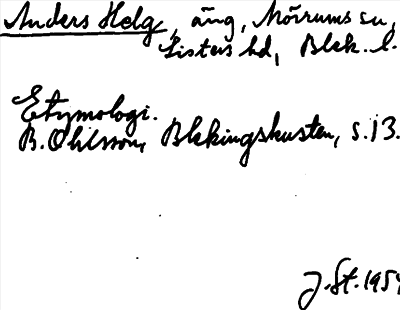 Anders Helg, äng, Mörrums sn,
Listers hd, Blek. l.
Etymologi.
B. Ohlsson, Blekingskusten, s. 13.
J. St. 1954